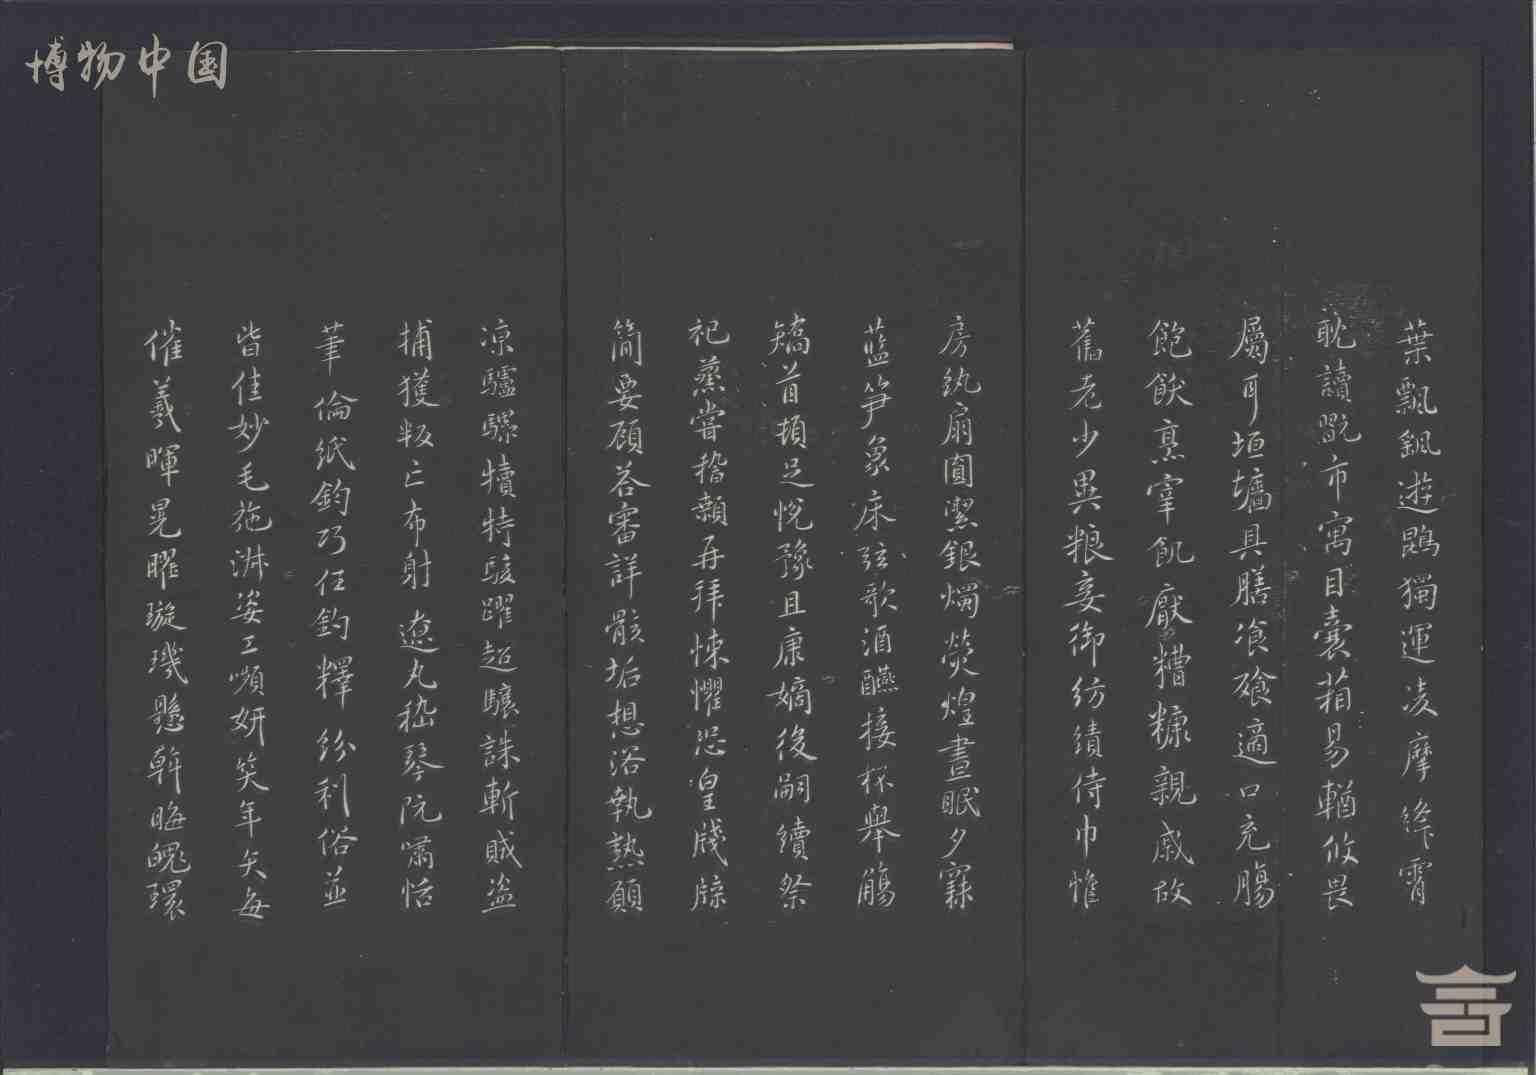 博物中国
葉飄飖遊鵾獨運凌摩絳霄
耽讀翫市寓目囊葙易輶攸畏
屬耳垣墻具膳飡飱適口充腸
飽飫烹宰飢厭糟糠親戚故
舊老少異粮妾御紡績侍巾帷
房紈扇圓潔銀燭熒煌晝眠夕寐
藍笋象床弦歌酒讌接杯舉觴
矯首頓足悅豫且康嫡後嗣續祭
祀蒸嘗稽顙再拜悚懼恐皇牋牒
簡要顧答審詳骸垢想浴執熱願
凉驢騾犢特駭躍超驤誅斬賊盜
捕獲叛亡布射遼丸嵇琴阮嘯恬
筆倫紙鈞巧任釣釋紛利俗並
皆佳妙毛施淑姿工嚬妍笑年矢每
催羲暉晃曜璇璣懸斡晦魄環